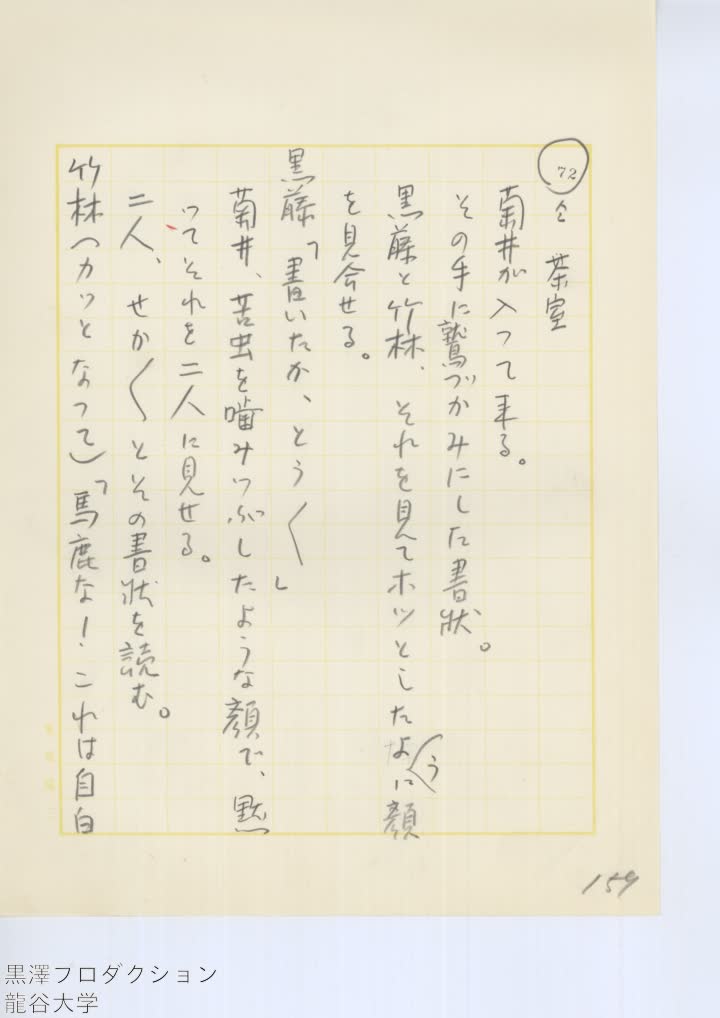 72 仝 茶室
菊井が入って来る。
その手に鷲づかみにした書状。
黒藤と竹林、それを見てホッとしたように顔
を見合せる。
黒藤「書いたか、とう〱」
菊井、苦虫を噛みつぶしたような顔で、黙
ってそれを二人に見せる。
二人、せか〱とその書状を読む。
竹林(カッとなって)「馬鹿な! これは自白
159
黒澤プロダクション
龍谷大学